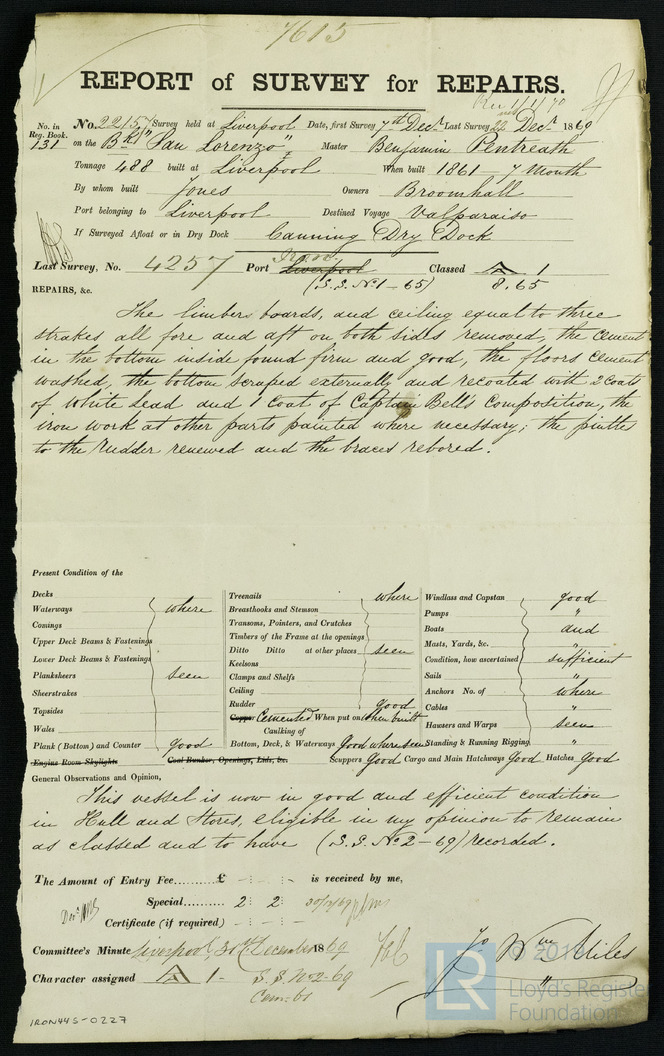 7615
REPORT of SURVEY for REPAIRS.
Rec 1/1/70
No. in Reg. Book. No. 22157 Survey held at Liverpool Date, first Survey 7th Decr Last Survey 22nd Decr 1869
131 on the Bk "San Lorenzo" Master Benjamin Pentreath
Tonnage 488 built at Liverpool When built 1861 - 7 Month
By whom built Jones Owners Broomhall
Port belonging to Liverpool Destined Voyage Valparaiso
If Surveyed Afloat or in Dry Dock Canning Dry Dock
Iron.
Last Survey, No. 4257 Port Liverpool Classed A 1
(S.S. No 1 - 65) 8.65
REPAIRS, &c.
The limbers boards, and ceiling equal to three
strakes all fore and aft on both sides removed, the cement
in the bottom inside found firm and good, the floors cement
washed, the bottom scraped externally and recoated with 2 coats
of White Lead and 1 Coat of Captain Bell's Composition, the
iron work at other parts painted where necessary; the pintles
to the rudder renewed and the braces rebored.
Present Condition of the
Decks
Waterways where
Comings
Upper Deck Beams & Fastenings
Lower Deck Beams & Fastenings
Planksheers seen
Sheerstrakes
Topsides
Wales
Plank (Bottom) and Counter good
Engine Room Skylights Coal Bunker, Openings, Lids, &c.
Treenails where
Breasthooks and Stemson
Transoms, Pointers, and Crutches
Timbers of the Frame at the openings
Ditto Ditto at other places seen
Keelsons
Clamps and Shelfs
Ceiling
Rudder good
Copper Cemented When put on when built
Caulking of
Bottom, Deck, & Waterways Good where seen
Scuppers Good Cargo and Main Hatchways Good Hatches Good
Windlass and Capstan good
Pumps "
Boats and
Masts, Yards, &c. "
Condition, how ascertained sufficient
Sails "
Anchors No. of where
Cables "
Hawsers and Warps seen
Standing & Running Rigging "
General Observations and Opinion,
This vessel is now in good and efficient condition
in Hull and Stores, eligible in my opinion to remain
as classed and to have (S.S. No 2 - 69) recorded.
The Amount of Entry Fee......... £ - : - : - is received by me,
Special......... 2 : 2 :
Certificate (if required) - - -
Committee's Minute Liverpool, 30th December 1869
Character assigned A 1 - S.S. No 2-69
Cem-61
Jo Wm Miles
"
LR © 201
Lloyd's Registe
Foundation
IRON445-0227